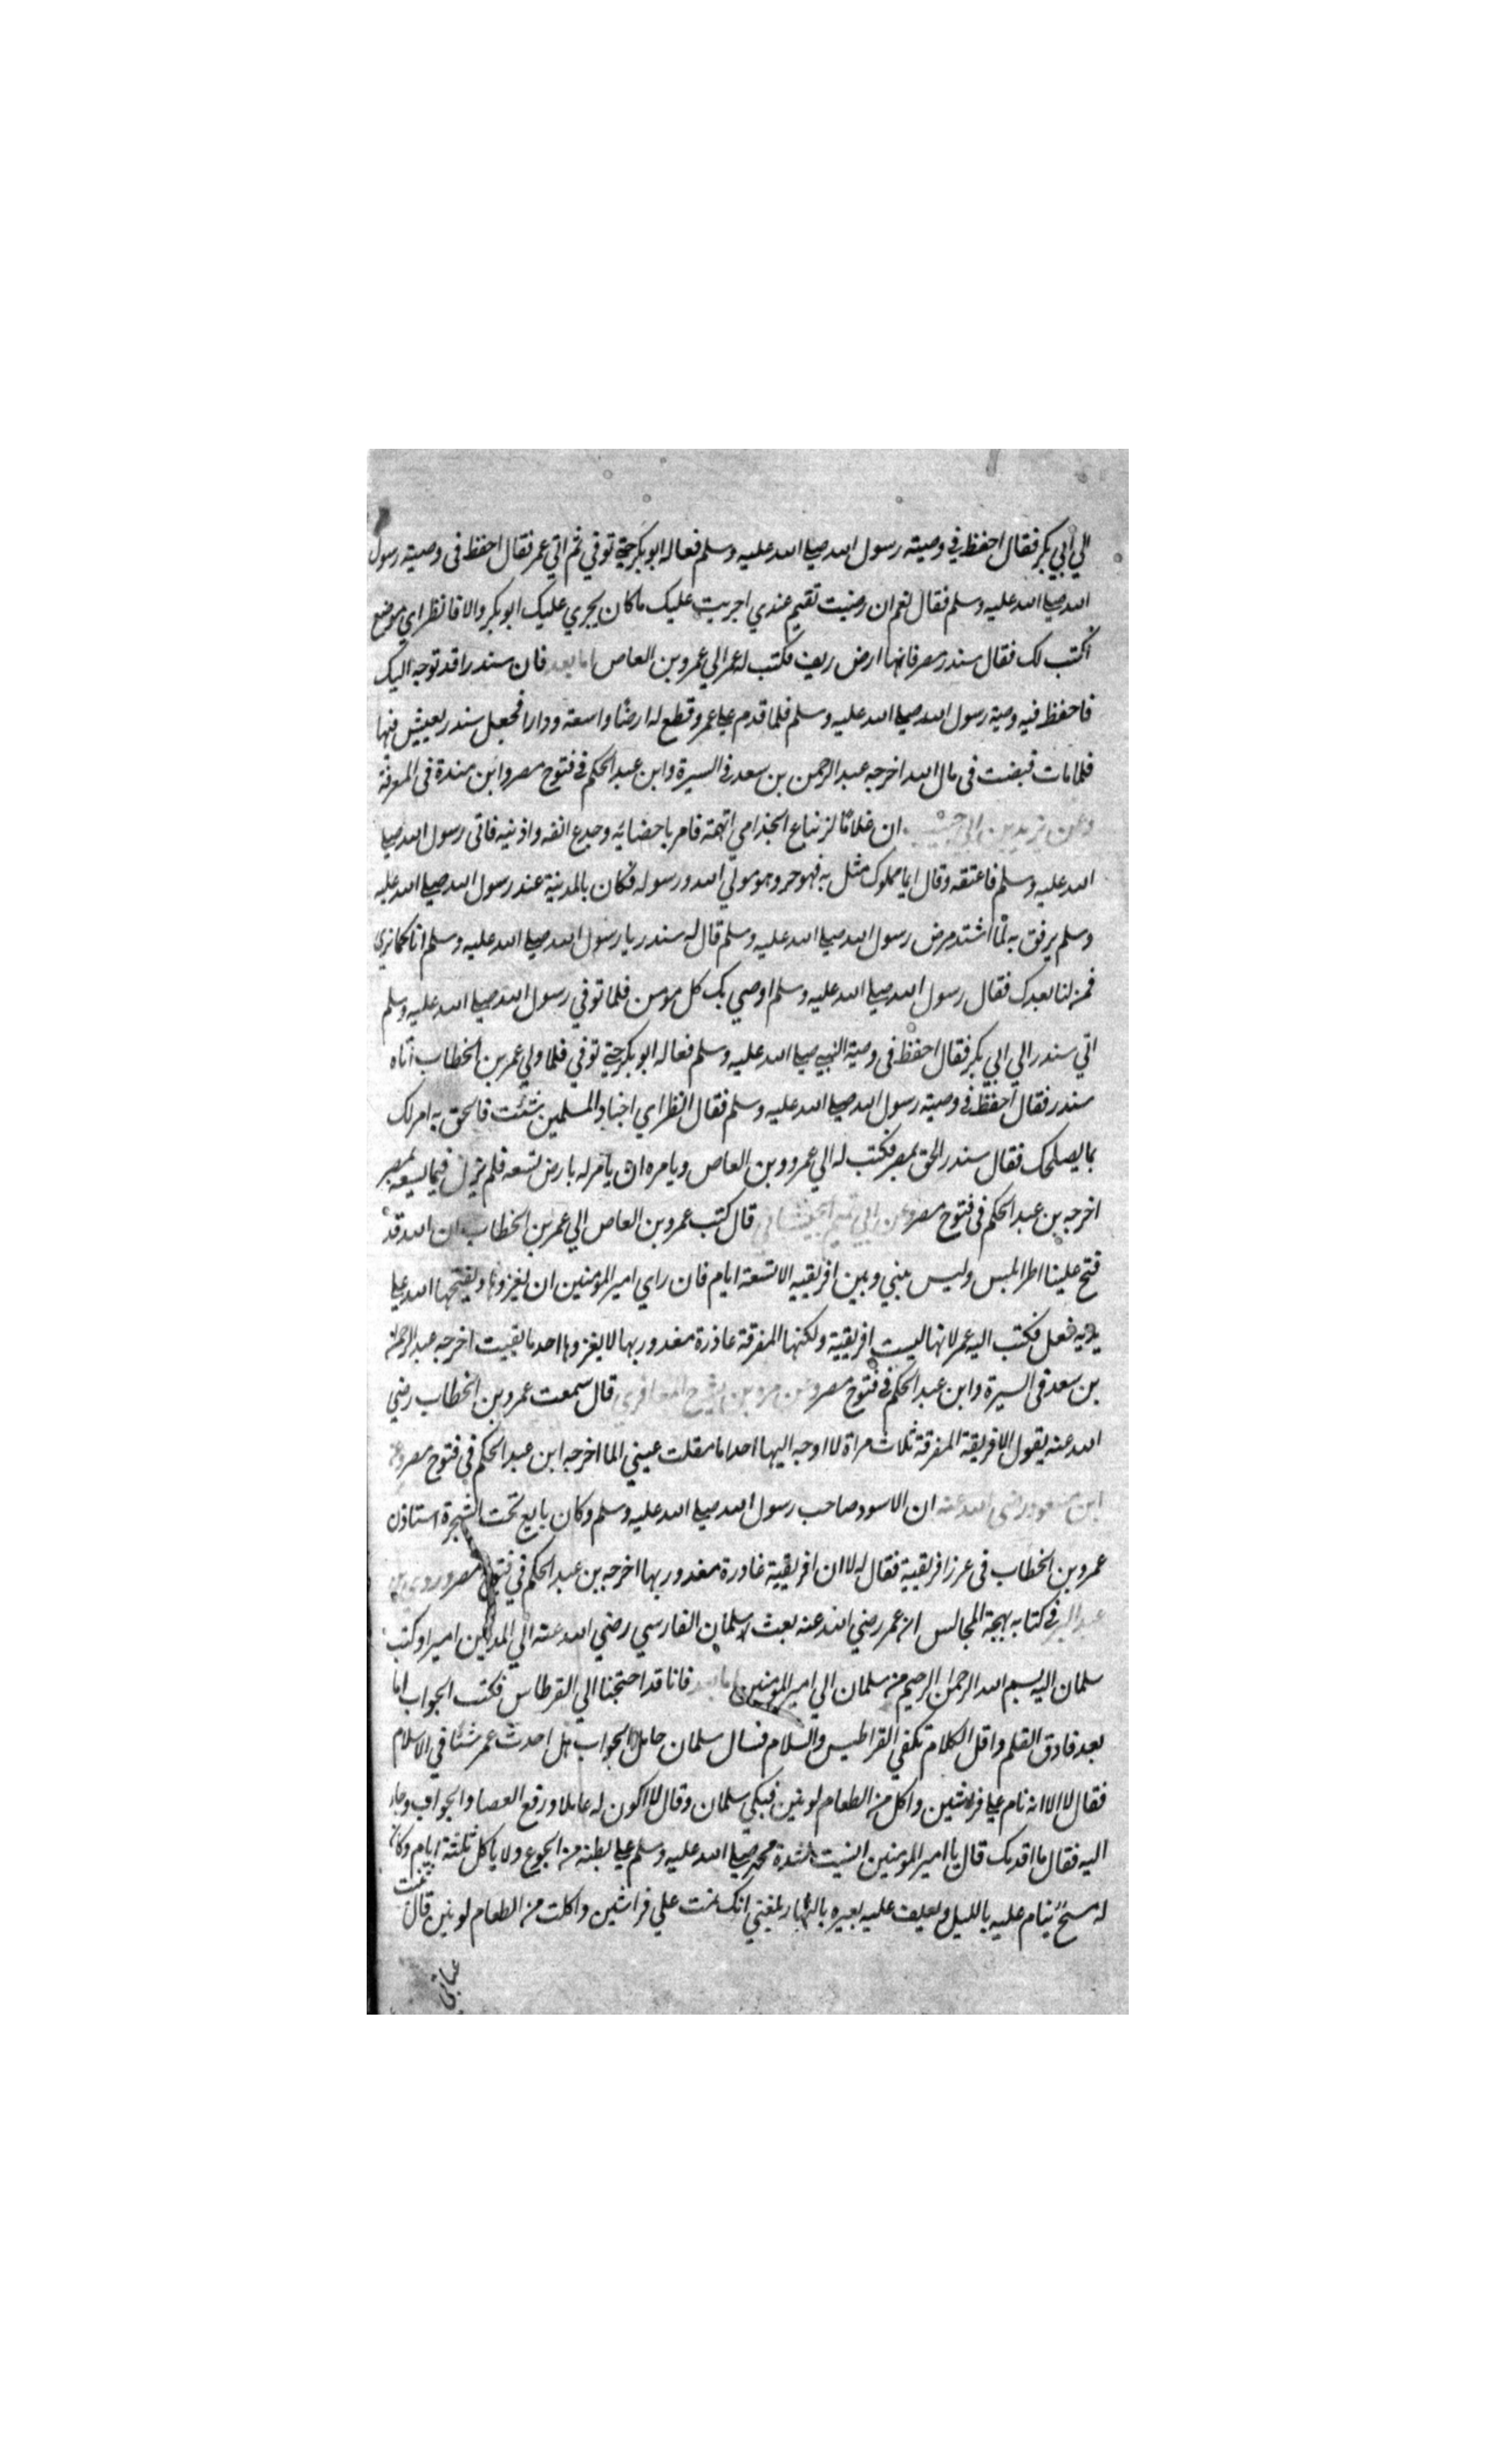 الي أبي بكر فقال احفظ في وصيته رسول الله صلى الله عليه وسلم فعاله ابو بكر حتى توفي ثم اتي عمر فقال احفظ فى وصيته رسول
الله صلى الله عليه وسلم فقال نعم ان رضيت تقيم عندي اجريت عليك ما كان يجري عليك ابو بكر والا فانظر اي موضع
اكتب لك فقال سندر مصر فانها ارض ريف فكتب له عمر الي عمرو بن العاص اما بعد فان سندرا قد توجه اليك
فاحفظ فيه وصية رسول الله صلى الله عليه وسلم فلما قدم على عمرو قطع له ارضا واسعة ودارا فجعل سندر يعيش فيها
فلما مات قبضت فى مال الله اخرجه عبد الرحمن بن سعد في السيرة وابن عبد الحكم في فتوح مصر وابن مندة فى المعرفة
وعن يزيد بن ابي حبيب ان غلاما لزنباع الجذامي اتهمه فامر باخضائه وجدع انفه واذنيه فاتى رسول الله صلى
الله عليه وسلم فاعتقه وقال ايما مملوك مثل به فهو حر وهو مولي الله ورسوله فكان بالمدينة عند رسول الله صلى الله عليه
وسلم يرفق به لما اشتد مرض رسول الله صلى الله عليه وسلم قال له سندر يا رسول الله صلى الله عليه وسلم انا كما ترى
فمن لنا بعدك فقال رسول الله صلى الله عليه وسلم اوصي بك كل مومن فلما توفي رسول الله صلى الله عليه وسلم
اتي سندر الي ابي بكر فقال احفظ فى وصية النبي صلى الله عليه وسلم فعاله ابو بكر حتى توفي فلما ولي عمر بن الخطاب اتاه
سندر فقال احفظ في وصيته رسول الله صلى الله عليه وسلم فقال انظر اي اجناد المسلمين شئت فالحق به امر لك
بما يصلحك فقال سندر الحق بمصر فكتب له الي عمرو بن العاص ويامره ان يأمر له بارض تسعه فلم يزل فيما يسعه بمصر
اخرجه بن عبد الحكم فى فتوح مصر وعن ابي تميم الجيشاني قال كتب عمرو بن العاص الي عمر بن الخطاب ان الله قد
فتح علينا اطرابلس وليس بيني وبين افريقيه الا تسعة ايام فان راي امير المؤمنين ان يغزوها ويفتحها الله على
يديه فعل فكتب اليه عمر لا انها ليست افريقية ولكنها المفرقة غاذرة مغدور بها لا يغزوها احد ما بقيت اخرجه عبد الرحمن
بن سعد فى السيرة وابن عبد الحكم في فتوح مصر وعن مرة بن يشرح المعافري قال سمعت عمر بن الخطاب رضي
الله عنه يقول الافريقة المفرقة ثلاث مراة لا اوجه اليها احدا ما مقلت عيني الما اخرجه ابن عبد الحكم في فتوح مصر وعن
ابن مسعود رضي الله عنه ان الاسود صاحب رسول الله صلى الله عليه وسلم وكان بايع تحت الشجرة استاذن
عمرو بن الخطاب فى غرز افريقية فقال له لا ان افريقية غادرة مغدور بها اخرجه بن عبد الحكم في فتوح مصر وروى بن
عبد البر في كتابه بهجة المجالس ان عمر رضي الله عنه بعث سلمان الفارسي رضي الله عنه الي المدائن اميرا وكتب
سلمان اليه بسم الله الرحمن الرحيم من سلمان الي امير المؤمنين اما بعد فانا قد احتجنا الى القرطاس فكتب الجواب اما
بعد فادق القلم واقل الكلام تكفي القراطيس والسلام فسال سلمان حامل الجواب هل احدث عمر شئا في الاسلام
فقال لا الا انه نام على فراشين واكل من الطعام لونين فبكي سلمان وقال لا اكون له عاملا ورفع العصا والجواب وجاء
اليه فقال ما اقدمك قال يا امير المؤمنين انسيت شدة محمد صلى الله عليه وسلم على بطنه من الجوع ولا ياكل ثلثة ايام وكان
له مسح ينام عليه بالليل ويعلف عليه بعيره بالنهار بلغني انك نمت علي فراشين واكلت من الطعام لونين قال